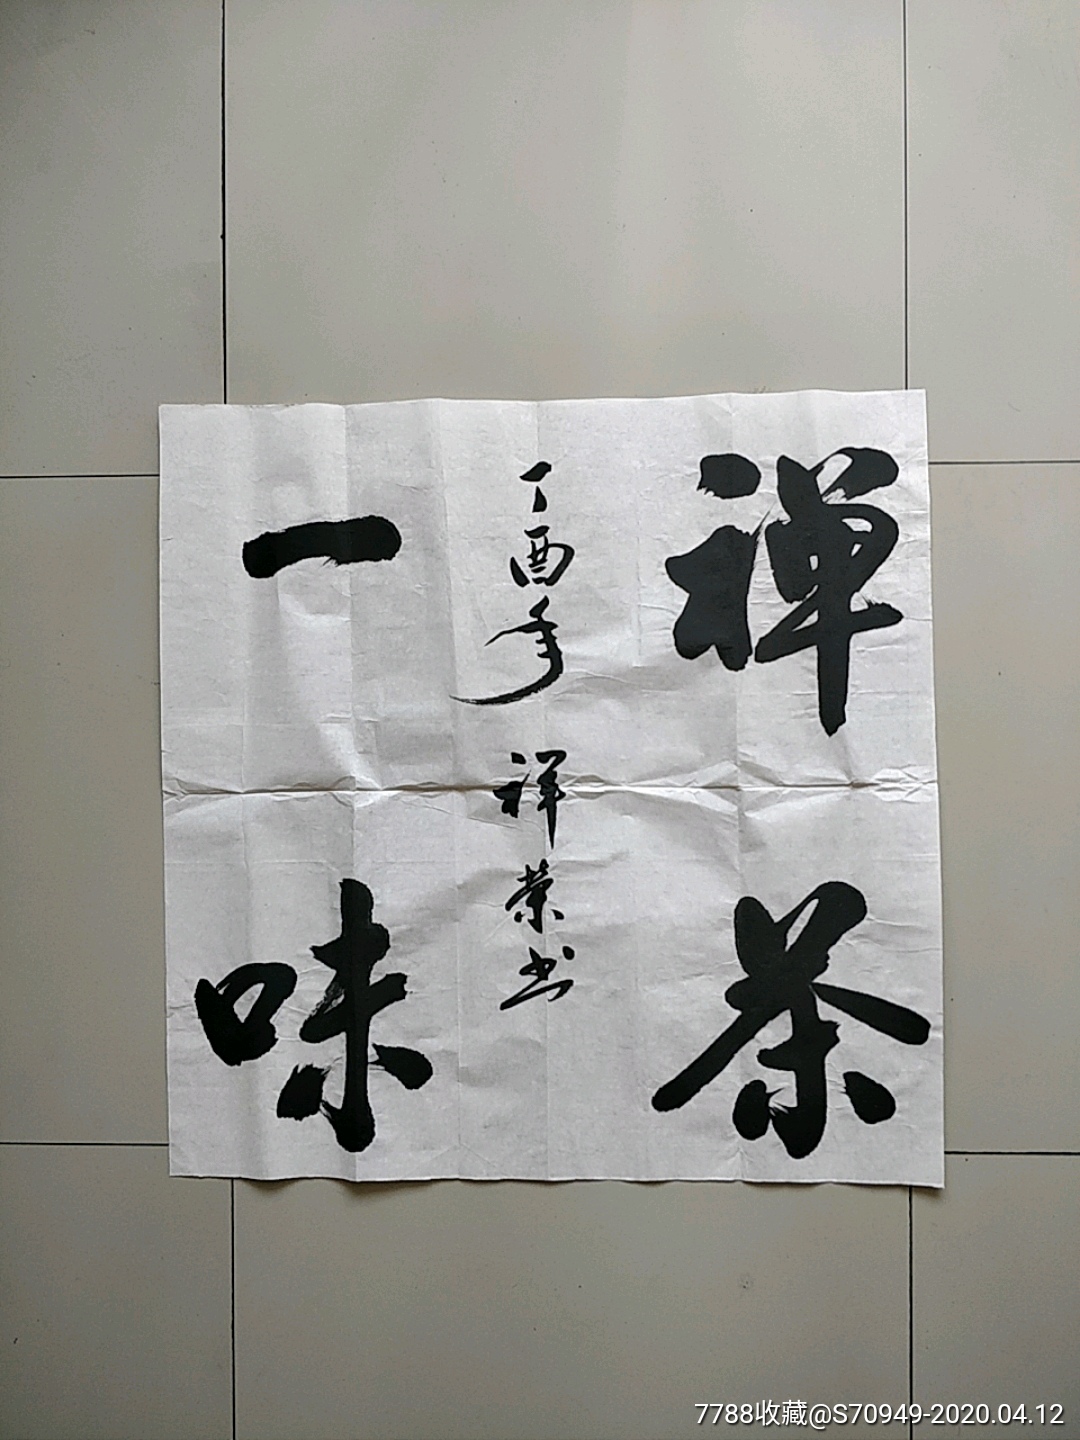 禅茶
丁酉年 祥荣书
一味
7788收藏@S70949-2020.04.12